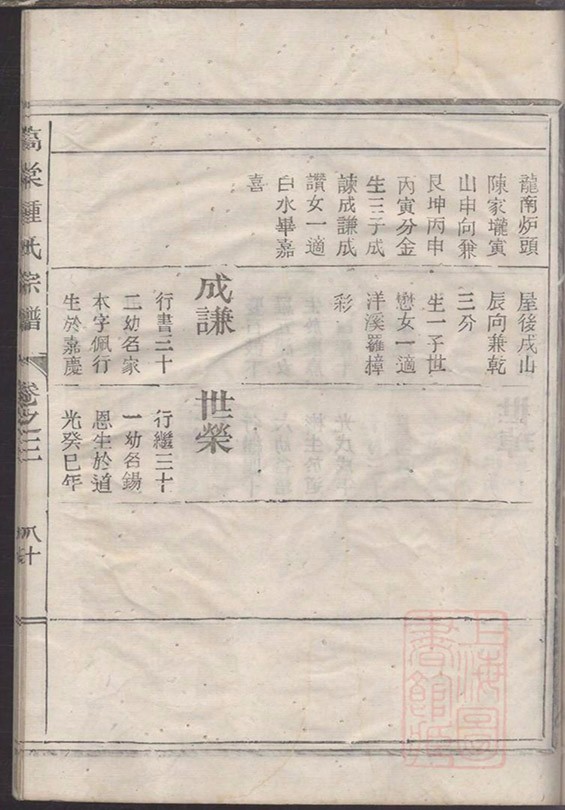 龍南炉頭
陳家壠寅
山申向兼
艮坤丙申
丙寅分金
生三子成
諫成謙成
讚女一適
白水畢嘉
喜
屋後戌山
辰向兼乾
三分
生一子世
懋女一適
洋溪羅撞
彩
成謙
行書三十
二幼名家
本字佩行
生於嘉慶
世榮
行繼三十
一幼名錫
恩生於道
光癸巳年
棠鍾氏宗譜
卷之三
八十
上海圖
書館